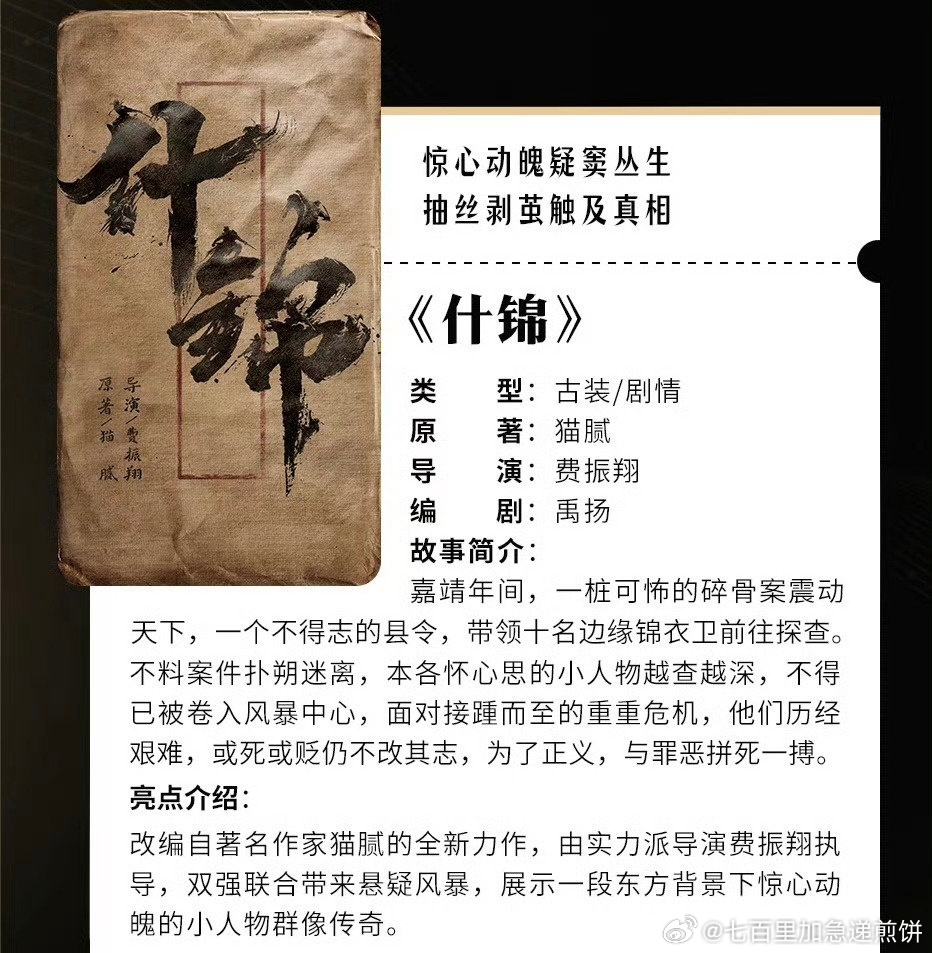 什锦
导演/费振翔
原著/猫腻
惊心动魄疑窦丛生
抽丝剥茧触及真相
《什锦》
类型：古装/剧情
原著：猫腻
导演：费振翔
编剧：禹扬
故事简介：
嘉靖年间，一桩可怖的碎骨案震动
天下，一个不得志的县令，带领十名边缘锦衣卫前往探查。
不料案件扑朔迷离，本各怀心思的小人物越查越深，不得
已被卷入风暴中心，面对接踵而至的重重危机，他们历经
艰难，或死或贬仍不改其志，为了正义，与罪恶拼死一搏。
亮点介绍：
改编自著名作家猫腻的全新力作，由实力派导演费振翔执
导，双强联合带来悬疑风暴，展示一段东方背景下惊心动
魄的小人物群像传奇。
@七百里加急递煎饼